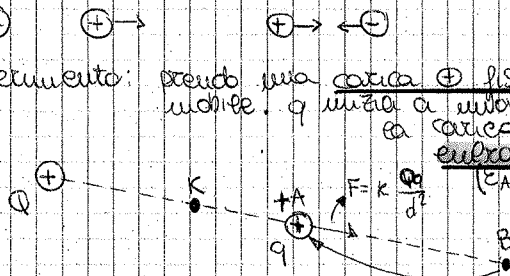 + + -
erimento: prendo una carica ⊕ fis
mobile. q inizia a muov
la carica
(EA
+ K +A F = K Qq/d²
Q + B
q